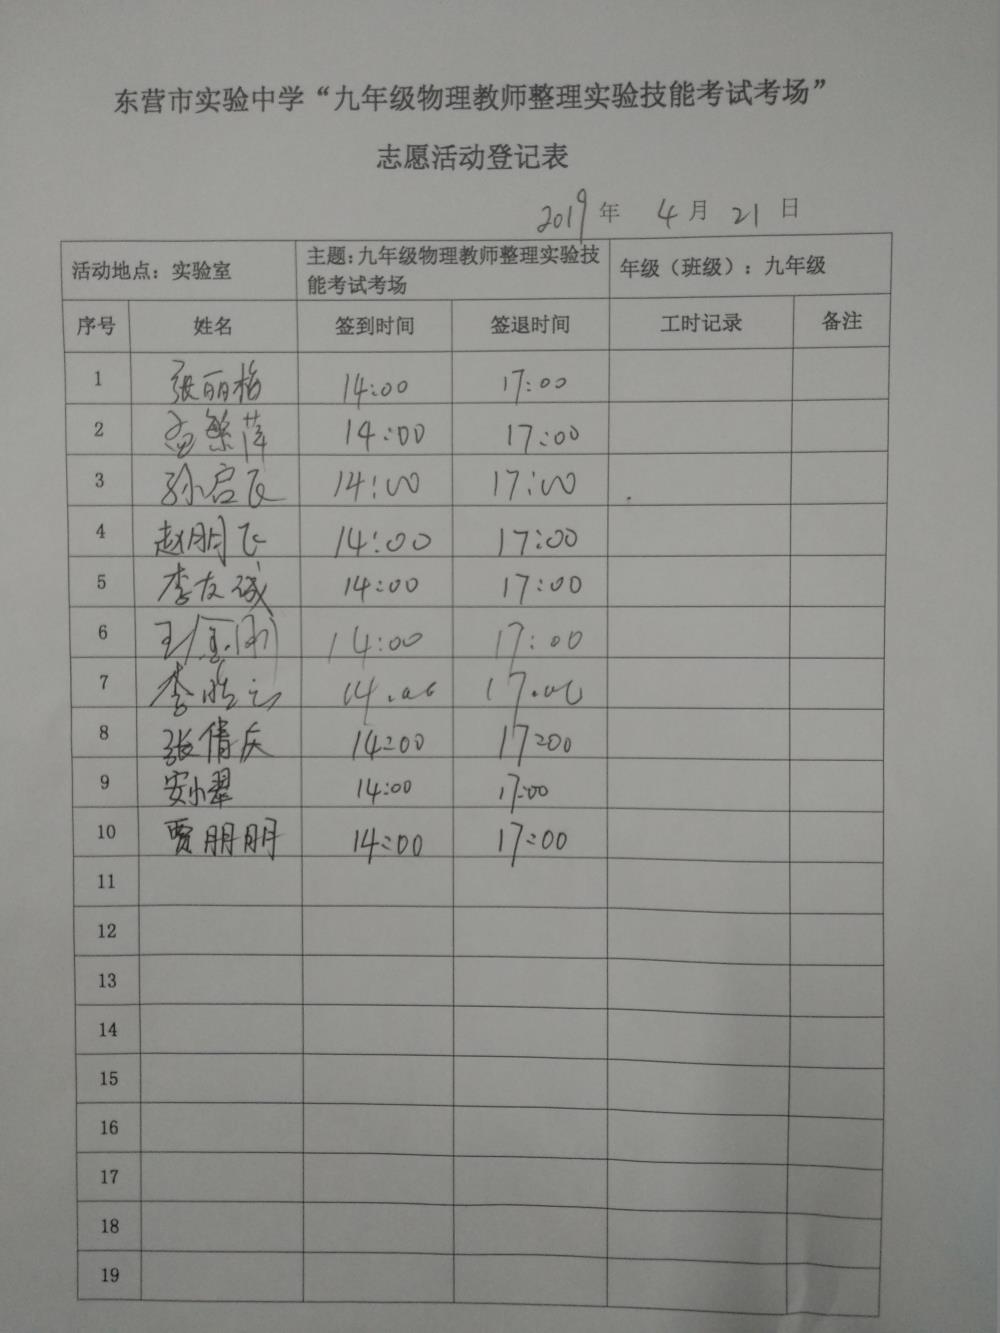 东营市实验中学“九年级物理教师整理实验技能考试考场”
志愿活动登记表
2019年 4月21日
活动地点：实验室 主题：九年级物理教师整理实验技 年级（班级）：九年级
能考试考场
序号 姓名 签到时间 签退时间 工时记录 备注
1 张丽梅 14:00 17:00
2 孟繁萍 14:00 17:00
3 孙启民 14:00 17:00
4 赵朋飞 14:00 17:00
5 李友诚 14:00 17:00
6 王金刚 14:00 17:00
7 李 14:00 17:00
8 张倩庆 14:00 17:00
9 安小翠 14:00 17:00
10 贾朋朋 14:00 17:00
11
12
13
14
15
16
17
18
19